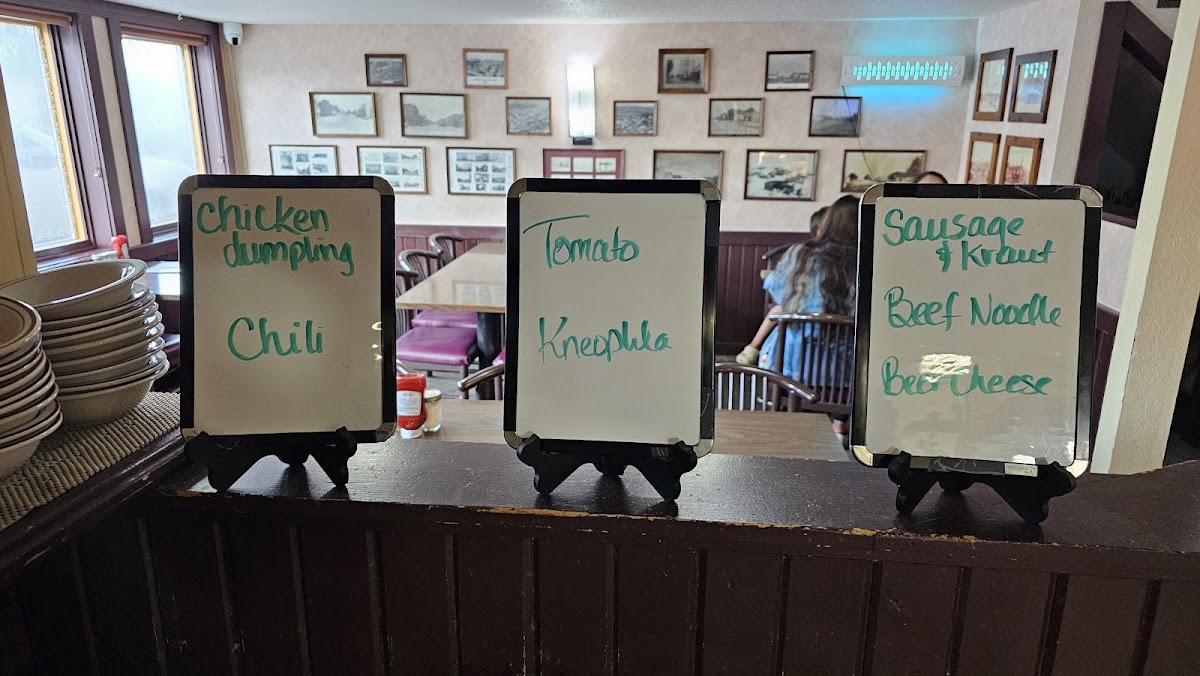 Chicken
dumpling
Chili
Tomato
Kneophla
Sausage
& Kraut
Beef Noodle
Beer Cheese